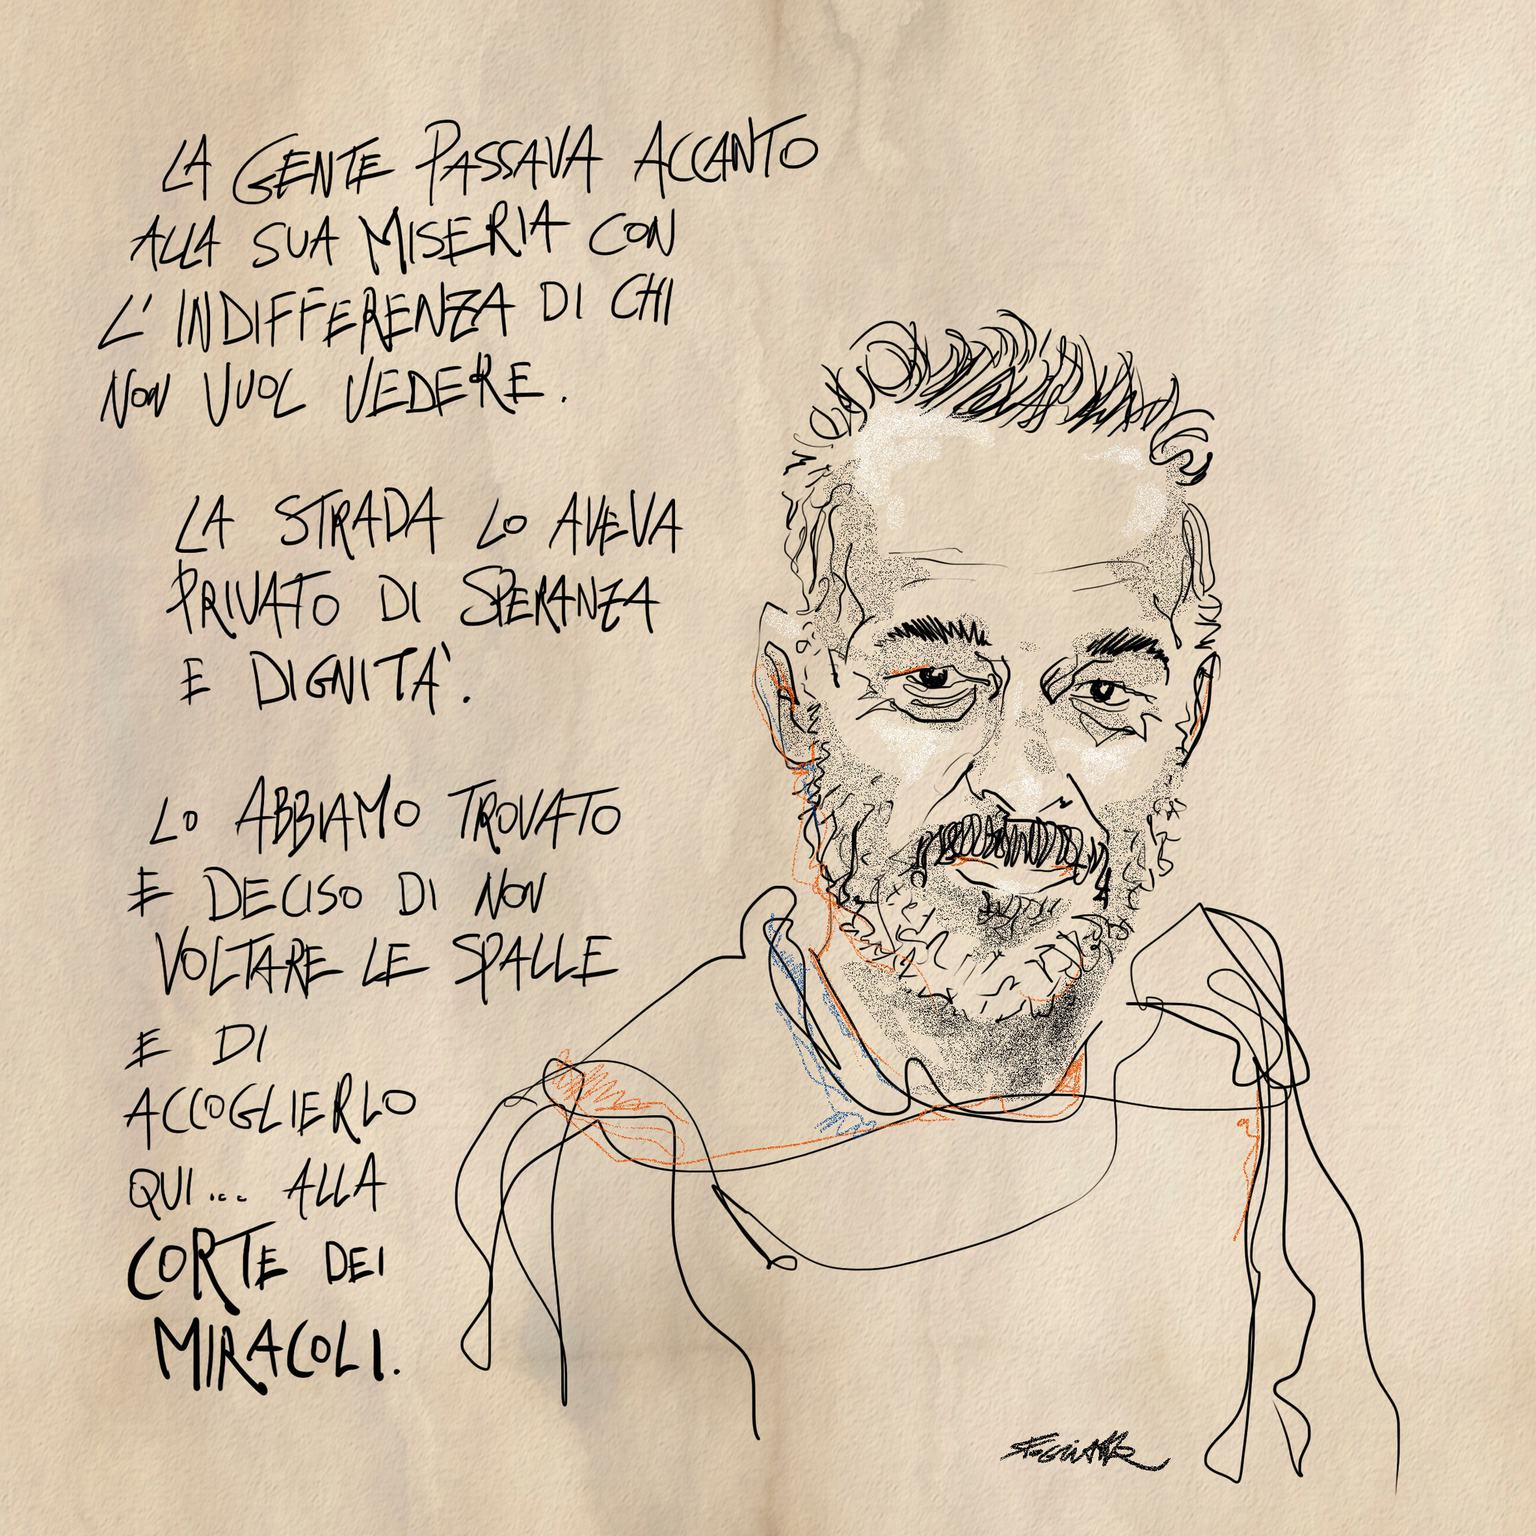 LA GENTE PASSAVA ACCANTO
ALLA SUA MISERIA CON
L'INDIFFERENZA DI CHI
NON VUOL VEDERE.
LA STRADA LO AVEVA
PRIVATO DI SPERANZA
E DIGNITA'.
LO ABBIAMO TROVATO
E DECISO DI NON
VOLTARE LE SPALLE
E DI
ACCOGLIERLO
QUI... ALLA
CORTE DEI
MIRACOLI.